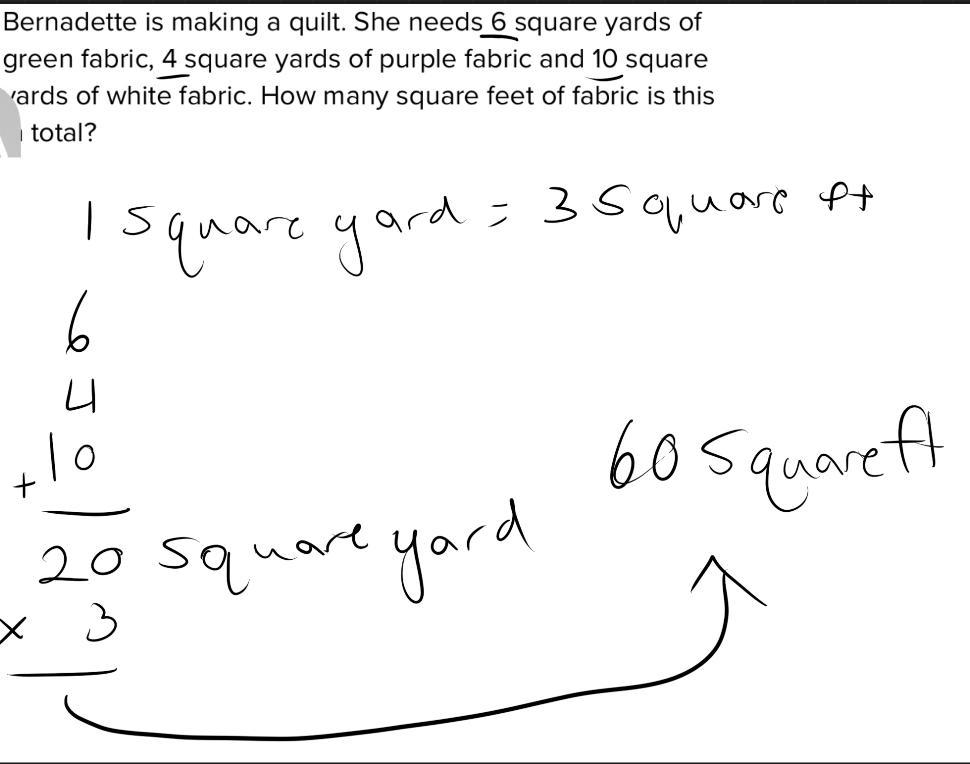 Bernadette is making a quilt. She needs 6 square yards of
green fabric, 4 square yards of purple fabric and 10 square
yards of white fabric. How many square feet of fabric is this
total?
1 square yard = 3 square ft
6
4
+10
60 square ft
20 square yard
x 3